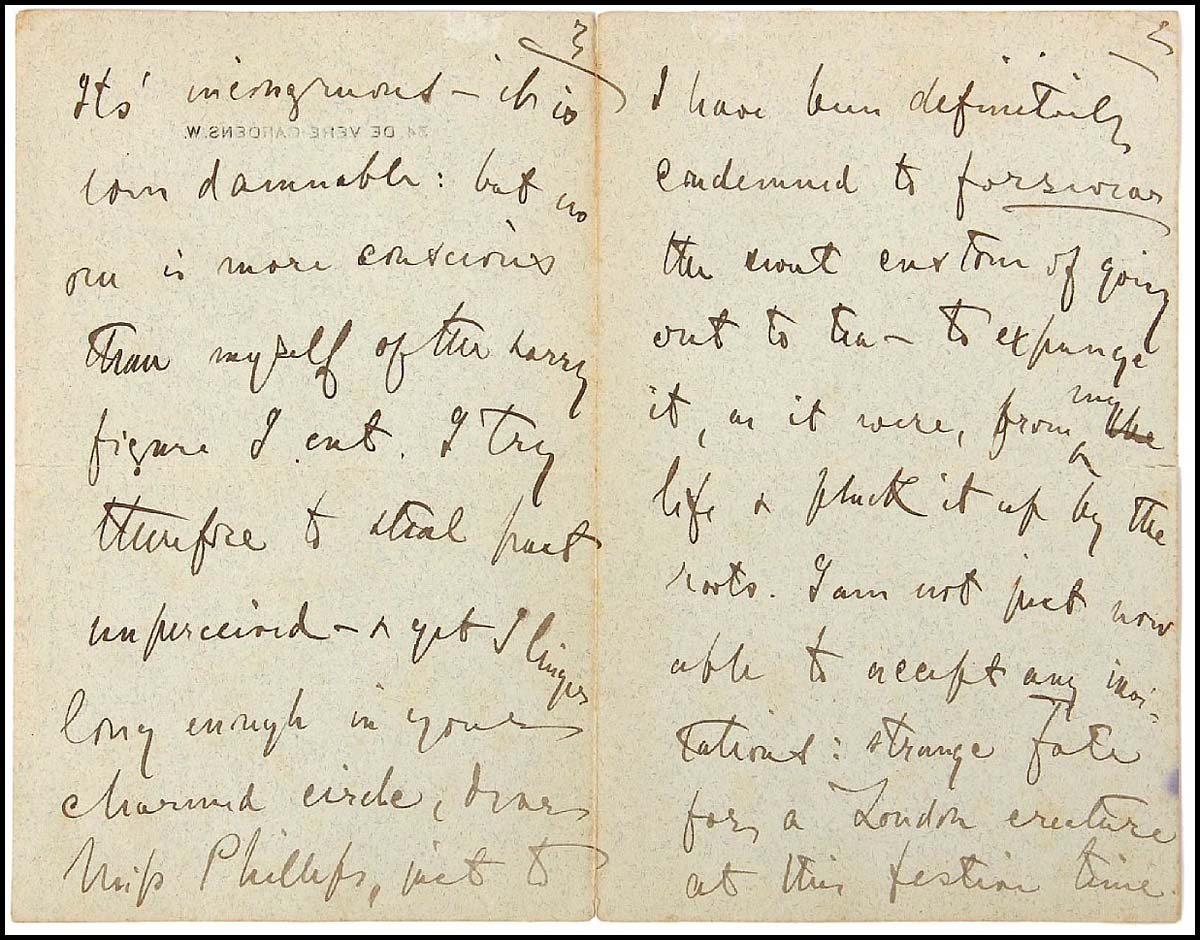 3
Its' incongruous – it is
34, DE VERE GARDENS.W.
even damnable: but no
one is more conscious
than myself of the sorry
figure I cut. I try
therefore to steal past
unperceived – & yet I linger
long enough in your
charmed circle, dear
Miss Phillips, just to
2
I have been definitely
condemned to forswear
the sweet custom of going
out to tea – to expunge
it, as it were, from my the
life & pluck it up by the
roots. I am not just now
able to accept any invi-
tations: strange fate
for a London creature
at this festive time.